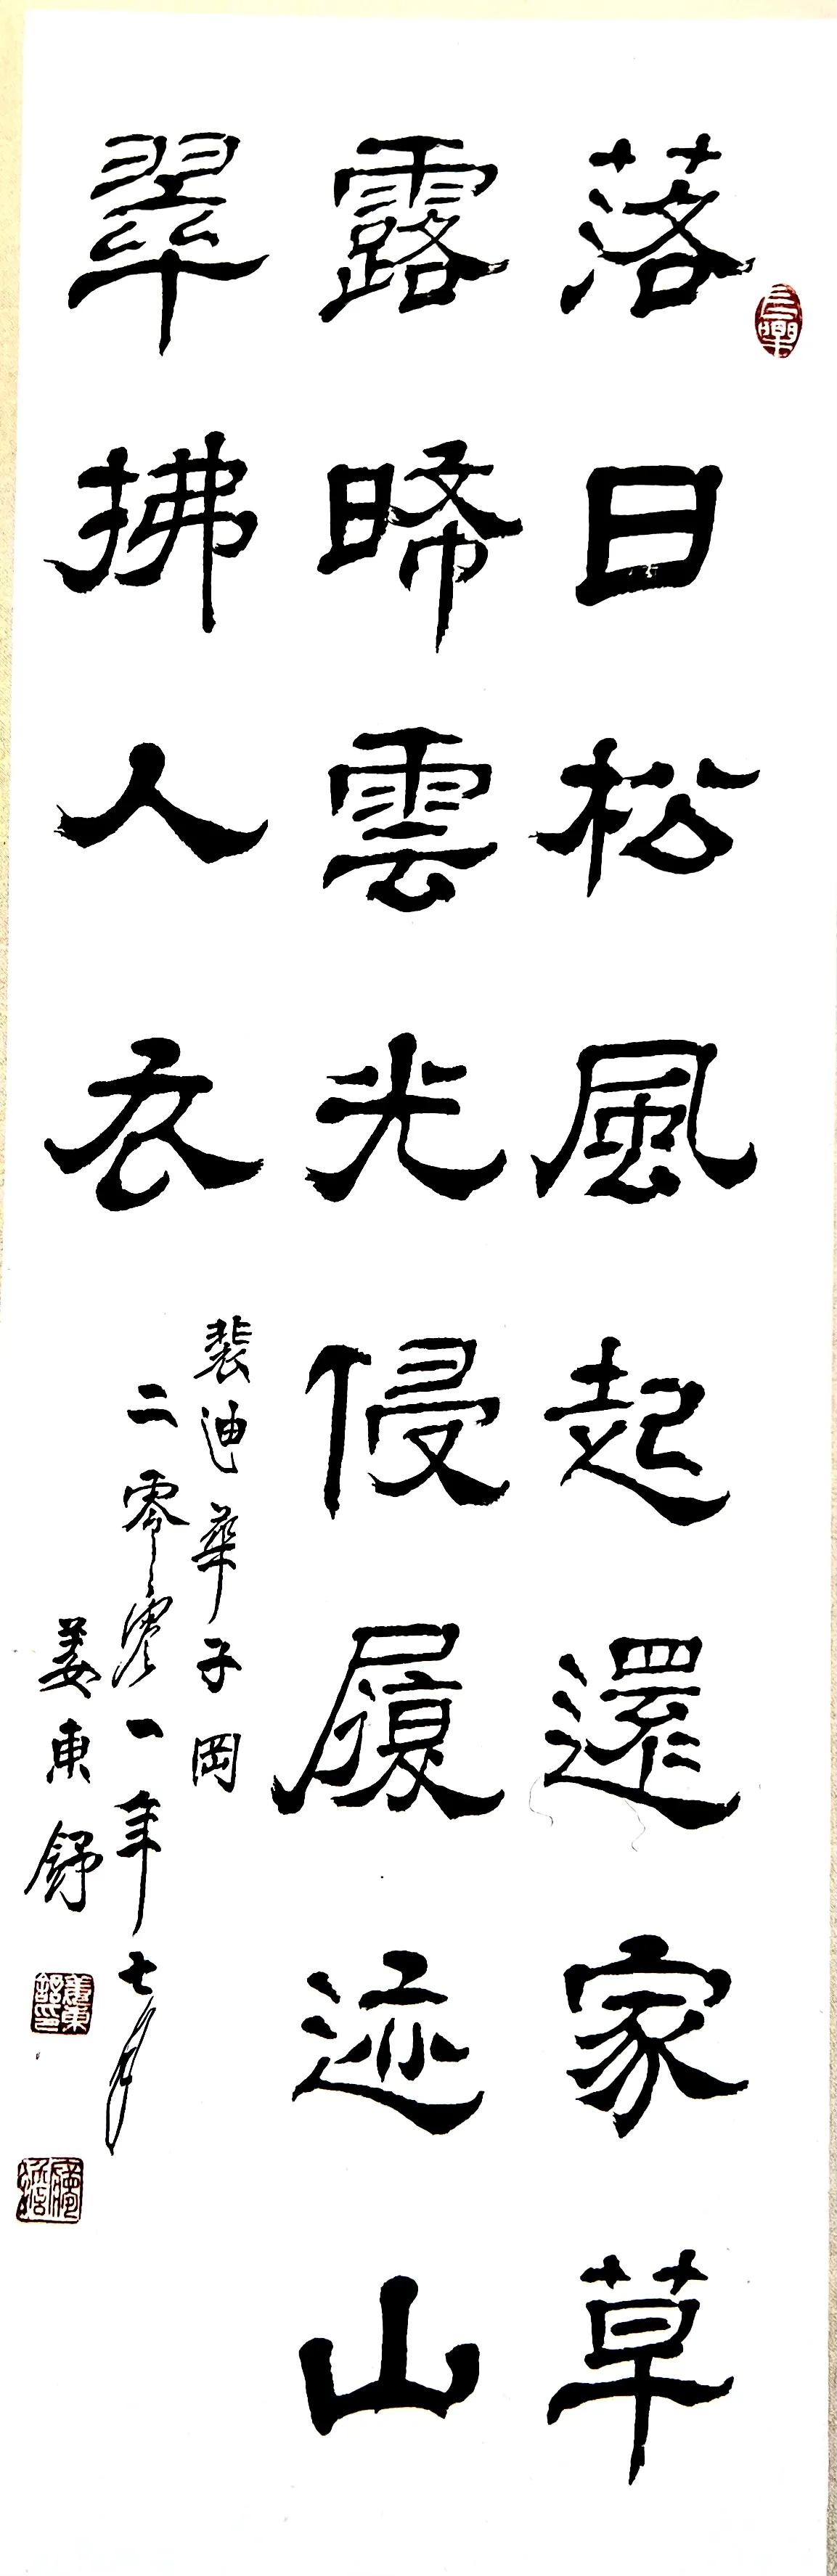 落日松風起還家草
露晞雲光侵履迹山
翠拂人衣
裴迪華子岡
二零零一年七月
姜東舒